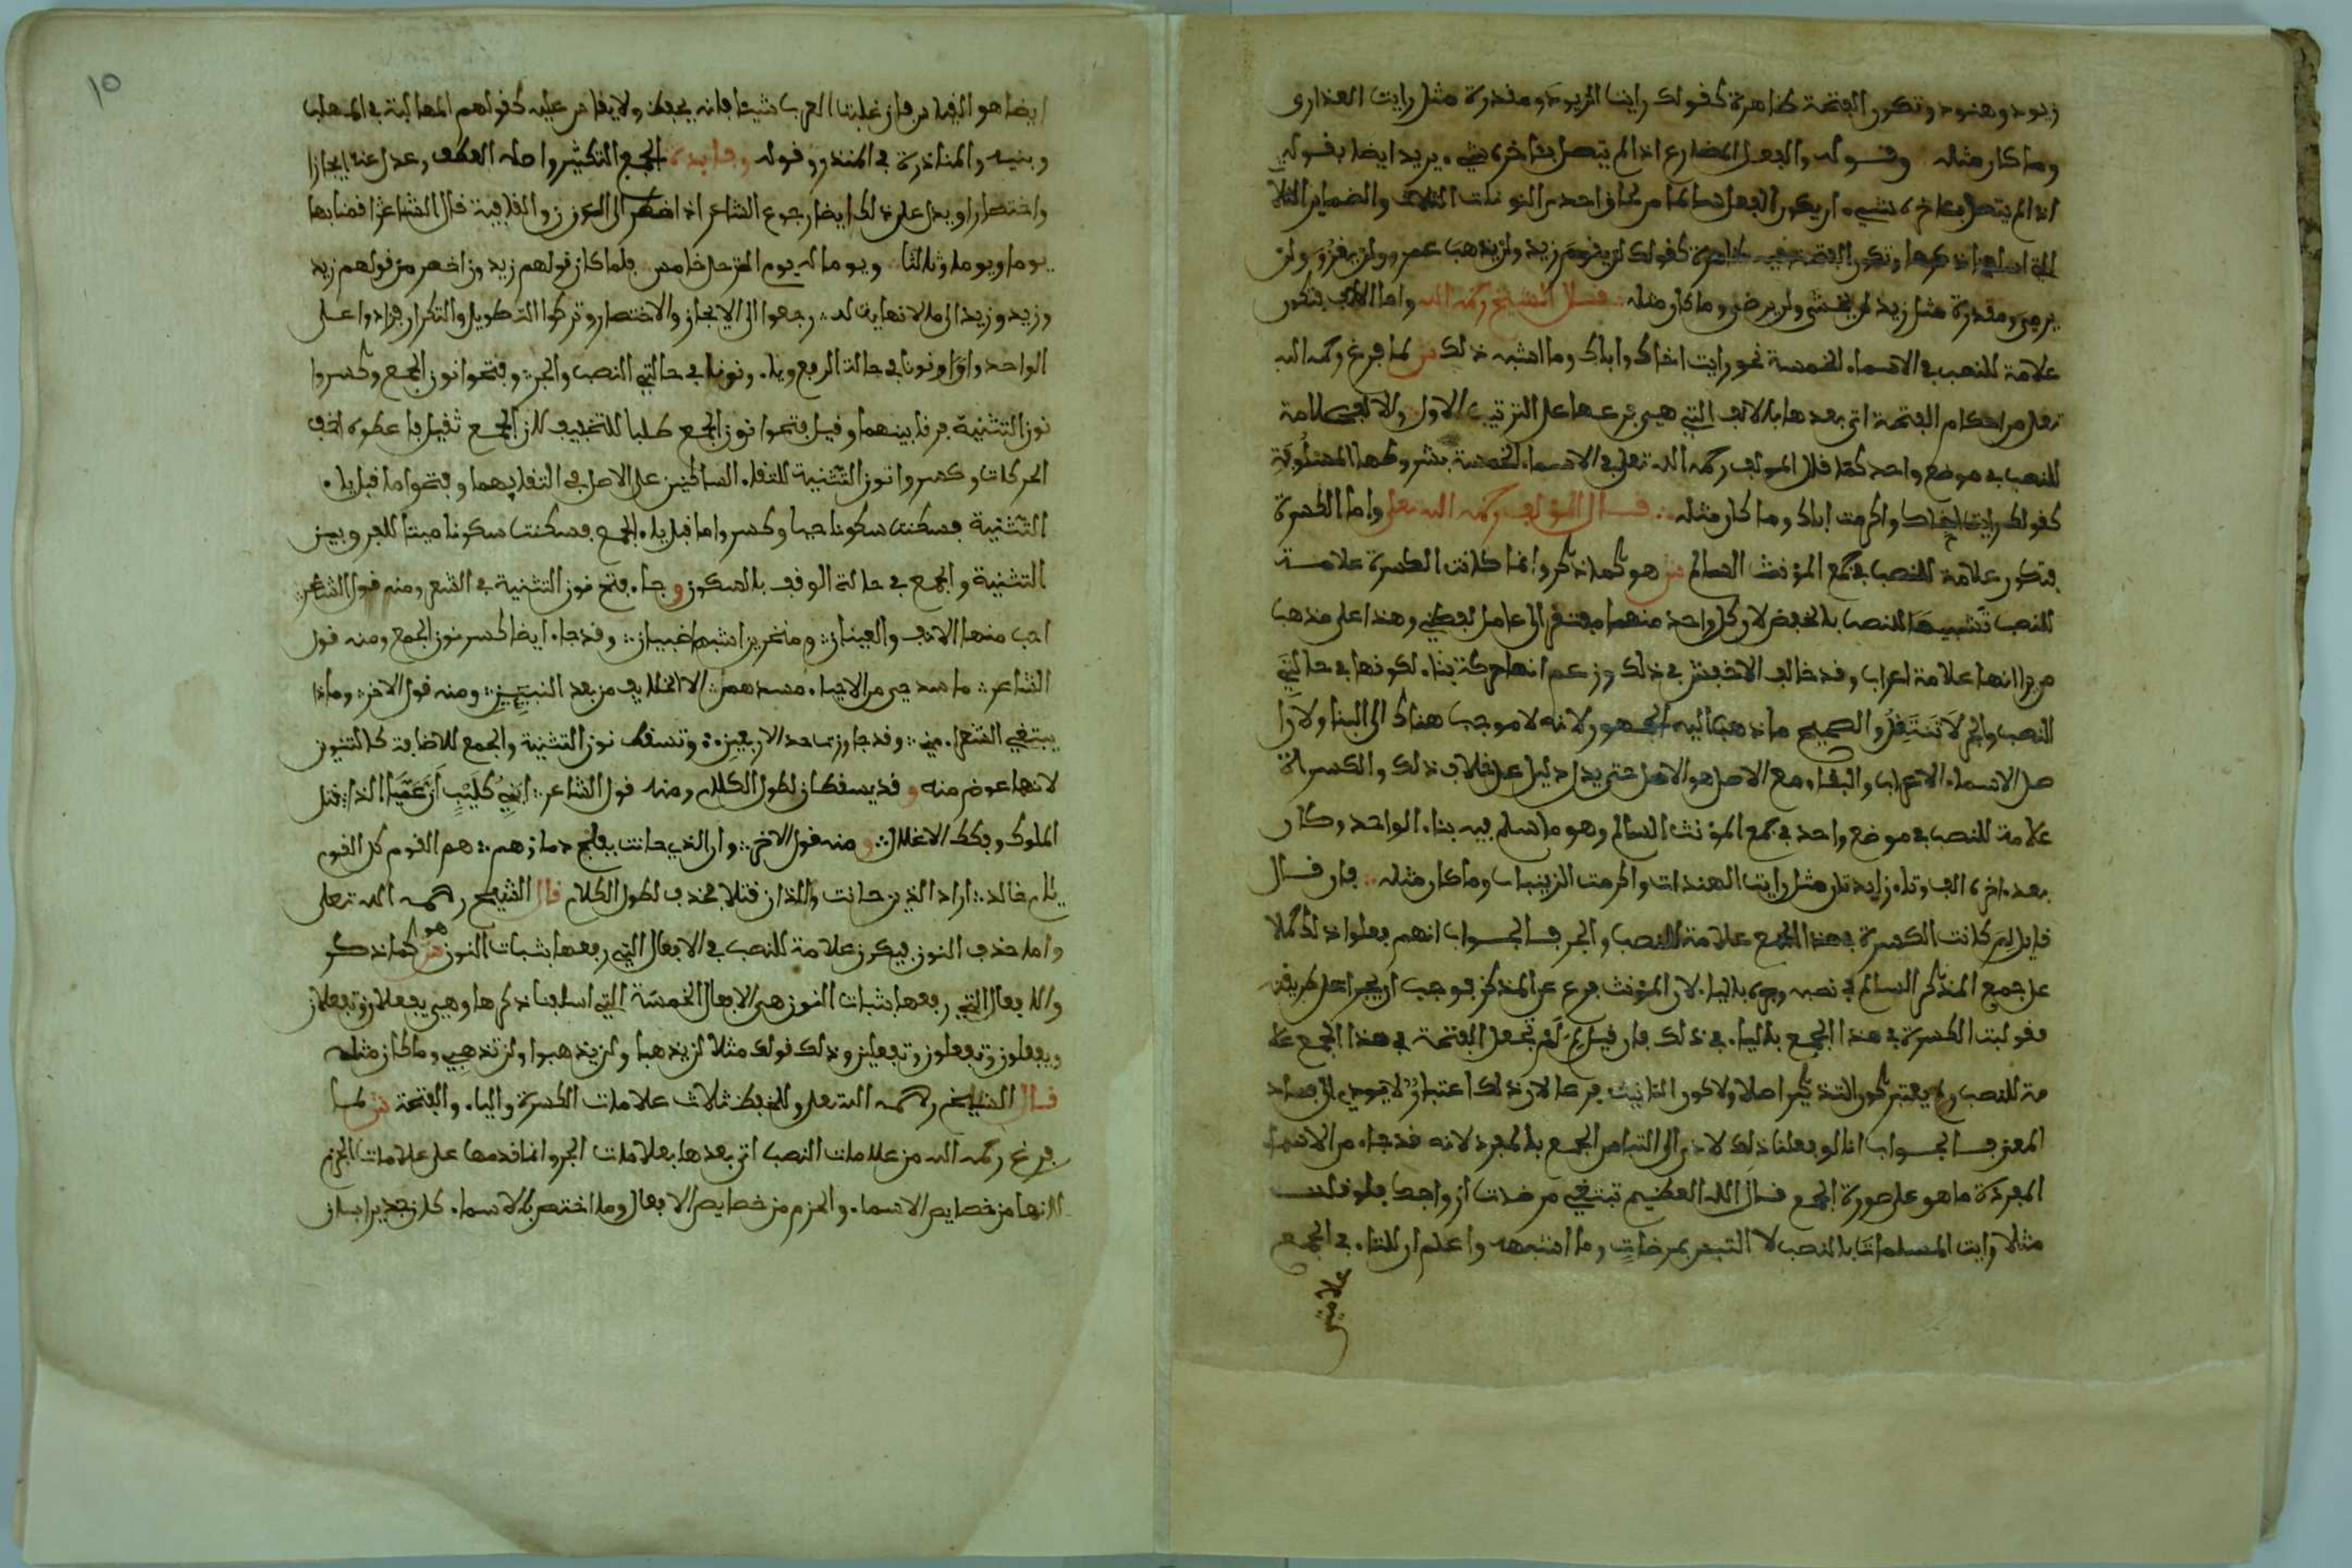 زيود وهنود وتكون الفتحة ظاهرة كقولك رايت الزيود ومقدرة مثل رايت العذارى
وما كان مثله وقوله والفعل المضارع اذا لم يتصل بـاخره شيء يريد ايضا بقوله
اذا لم يتصل بـاخره شيء ان يكون الفعل سالما من لحاق احد من النونات الثلاث والضماير الثلا
ذكرها وتكون الفتحة فيه ظاهرة كقولك لن يقوم زيد ولن يذهب عمرو ولن يغزو ولن
يرمي ومقدرة مثل زيد لن يخشى ولن يرضى وما كان مثله قال الشيخ رحمه الله واما الالف فتكون
علامة للنصب في الاسماء الخمسة نحو رايت اخاك واباك وما اشبه ذلك ش لما فرغ رحمه الله
تعلى من احكام الفتحة اتى بعدها بالالف التي هي فرعها على الترتيب الاول والالف علامة
للنصب في موضع واحد كما قال المولف رحمه الله تعلى في الاسماء الخمسة بشروطها المسلوفة
كقولك رايت اخاك واكرمت اباك وما كان مثله قال المؤلف رحمه الله تعلى واما الكسرة
فتكون علامة للنصب في جمع المؤنث السالم ش هو كما ذكر وانما كانت الكسرة علامة
للنصب تشبيها للنصب بالخفض لان كل واحد منهما مفتقر الى عامل لفظي وهذا على مذهب
من يرا انها علامة اعراب وقد خالف الاخفش في ذلك وزعم انها حركة بناء لكونها في حالتي
النصب والجر لا تتغير والصحيح ما ذهب اليه الجمهور لانه لا موجب هناك الى البنا ولان ا
صل الاسماء الاعراب والبقاء مع الاصل هو الاصل حتى يدل دليل على خلاف ذلك والكسرة
علامة للنصب في موضع واحد في جمع المؤنث السالم وهو ما سلم فيه بناء الواحد وكان
بعد اخره الف وتاء زايدتان مثل رايت الهندات واكرمت الزينبات وما كان مثله فان قال
قايل لم كانت الكسرة في هذا الجمع علامة للنصب والجر فالجواب انهم فعلوا ذلك حملا
على جمع المذكر السالم في نصبه وجره بالياء لان المؤنث فرع عن المذكر فوجب ان يجرا على طريقه
فقوبلت الكسرة في هذا الجمع بالياء في ذلك فان قيل لم لم تجعل الفتحة في هذا الجمع علا
مة للنصب ولم يعتبر كون التذكير اصلا ولا كون التانيث فرعا لان ذلك اعتبار لا يودي الى فساد
المعنى فالجواب انا لو فعلنا ذلك لادى الى التباس الجمع بالمفرد لانه قد جاء من الاسماء
المفردة ما هو على صورة الجمع قال الله العظيم تبتغي مرضات ازواجك فلو قلت
مثلا رايت المسلمات بالنصب لا التبس بمرضات وما اشبهه واعلم ان للتاء في الجمع
علامتي
١٥
ايضا هو القياس فان غلبت العرب شيئا فانه يحفظ ولا يقاس عليه كقولهم المهالبة في المهلب
وبنيه والمناذرة في المنذر وقوله وفايدة الجمع التكثير واصله العطف وعدل عنه ايجازا
واختصارا ويدل على ذلك ايضا رجوع الشاعر اذا اضطر الى الوزن والقافية قال الشاعر اقمنا بها
يوما ويوما وثالثا ويوما له يوم الترحل خامس فلما كان قولهم زيدون اخصر من قولهم زيد
وزيد وزيد الى ما لا نهاية له رجعوا الى الايجاز والاختصار وتركوا التطويل والتكرار فزادوا على
الواحد واوا ونونا في حالة الرفع وياء ونونا في حالتي النصب والجر وفتحوا نون الجمع وكسروا
نون التثنية فرقا بينهما وقيل فتحوا نون الجمع طلبا للتخفيف لان الجمع ثقيل فاعطوه اخف
الحركات وكسروا نون التثنية للتقاء الساكنين على الاصل في التقايهما وفتحوا ما قبل ياء
التثنية فسكنت سكونا حيا وكسروا ما قبل ياء الجمع فسكنت سكونا ميتا للفرق بين
التثنية والجمع في حالة الوقف بالسكون وجاء فتح نون التثنية في الشعر ومنه قول الشاعر
احب منها الانف والعينان ومنخرين اشبها ظبيان وقد جاء ايضا كسر نون الجمع ومنه قول
الشاعر ما سد حي من الاحياء مسدهم الا الخلايف من بعد النبيين ومنه قول الاخر وماذا
يبتغي الشعراء مني وقد جاوزت حد الاربعين وتسقط نون التثنية والجمع للاضافة كالتنوين
لانها عوض منه وقد يسقطان لطول الكلام ومنه قول الشاعر ابني كليب ان عمي اللذا قتلا
الملوك وفككا الاغلال ومنه قول الاخر وان الذي حانت بفلج دماؤهم هم القوم كل القوم
يا ام خالد اراد الذين حانت واللذان قتلا فحذف لطول الكلام قال الشيخ رحمه الله تعلى
واما حذف النون فيكون علامة للنصب في الافعال التي رفعها بثبات النون ش هو كما ذكر
والافعال التي رفعها بثبات النون هي الافعال الخمسة التي اسلفنا ذكرها وهي يفعلان وتفعلان
ويفعلون وتفعلون وتفعلين وذلك قولك مثلا لن يذهبا ولن يذهبوا ولن تذهبي وما كان مثله
قال الشيخ رحمه الله تعلى وللخفظ ثلاث علامات الكسرة والياء والفتحة ش لما
فرغ رحمه الله من علامات النصب اتى بعدها بعلامات الجر وانما قدمها على علامات الجزم
لانها من خصايص الاسماء والجزم من خصايص الافعال وما اختص بالاسماء كان جديرا بان